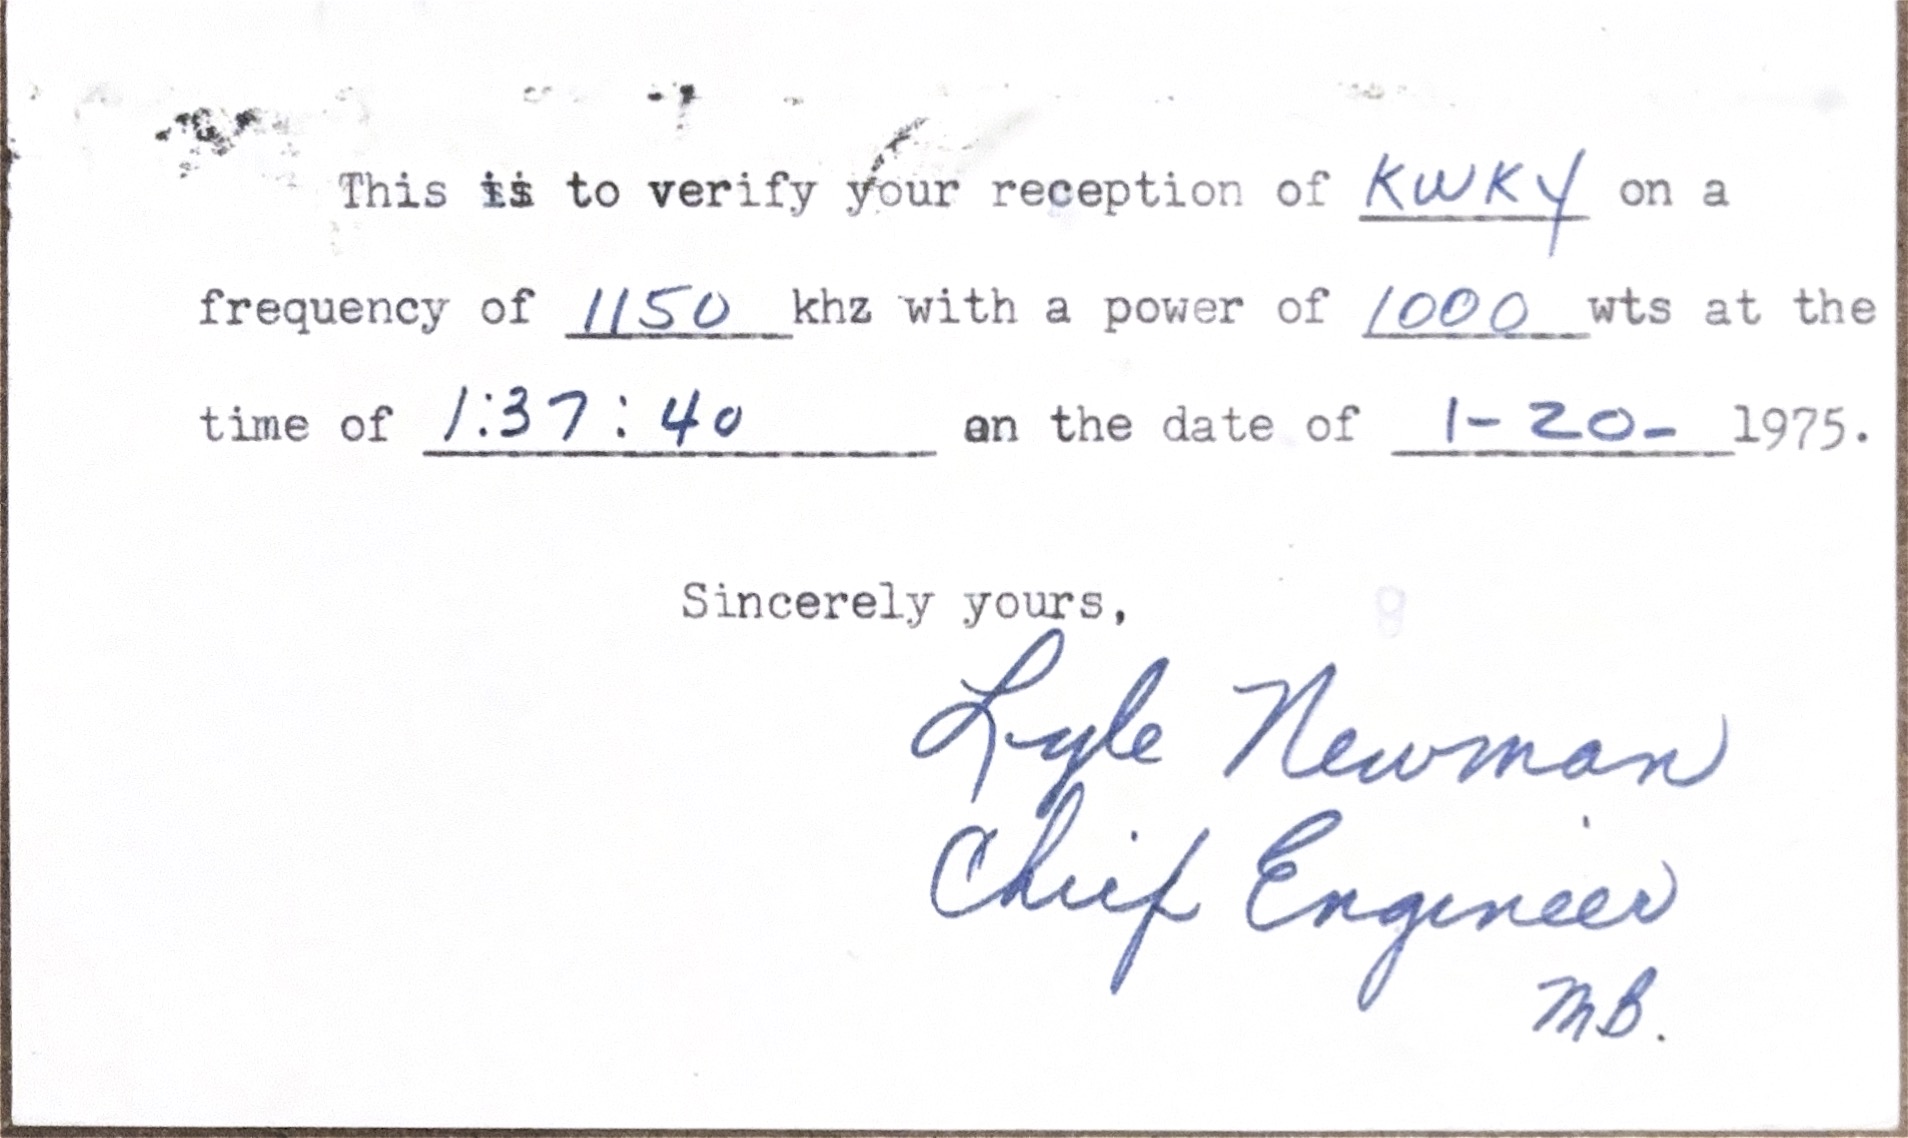 This is to verify your reception of KWKY on a
frequency of 1150 khz with a power of 1000 wts at the
time of 1:37:40 on the date of 1-20- 1975.
Sincerely yours,
Lyle Newman
Chief Engineer
MB.